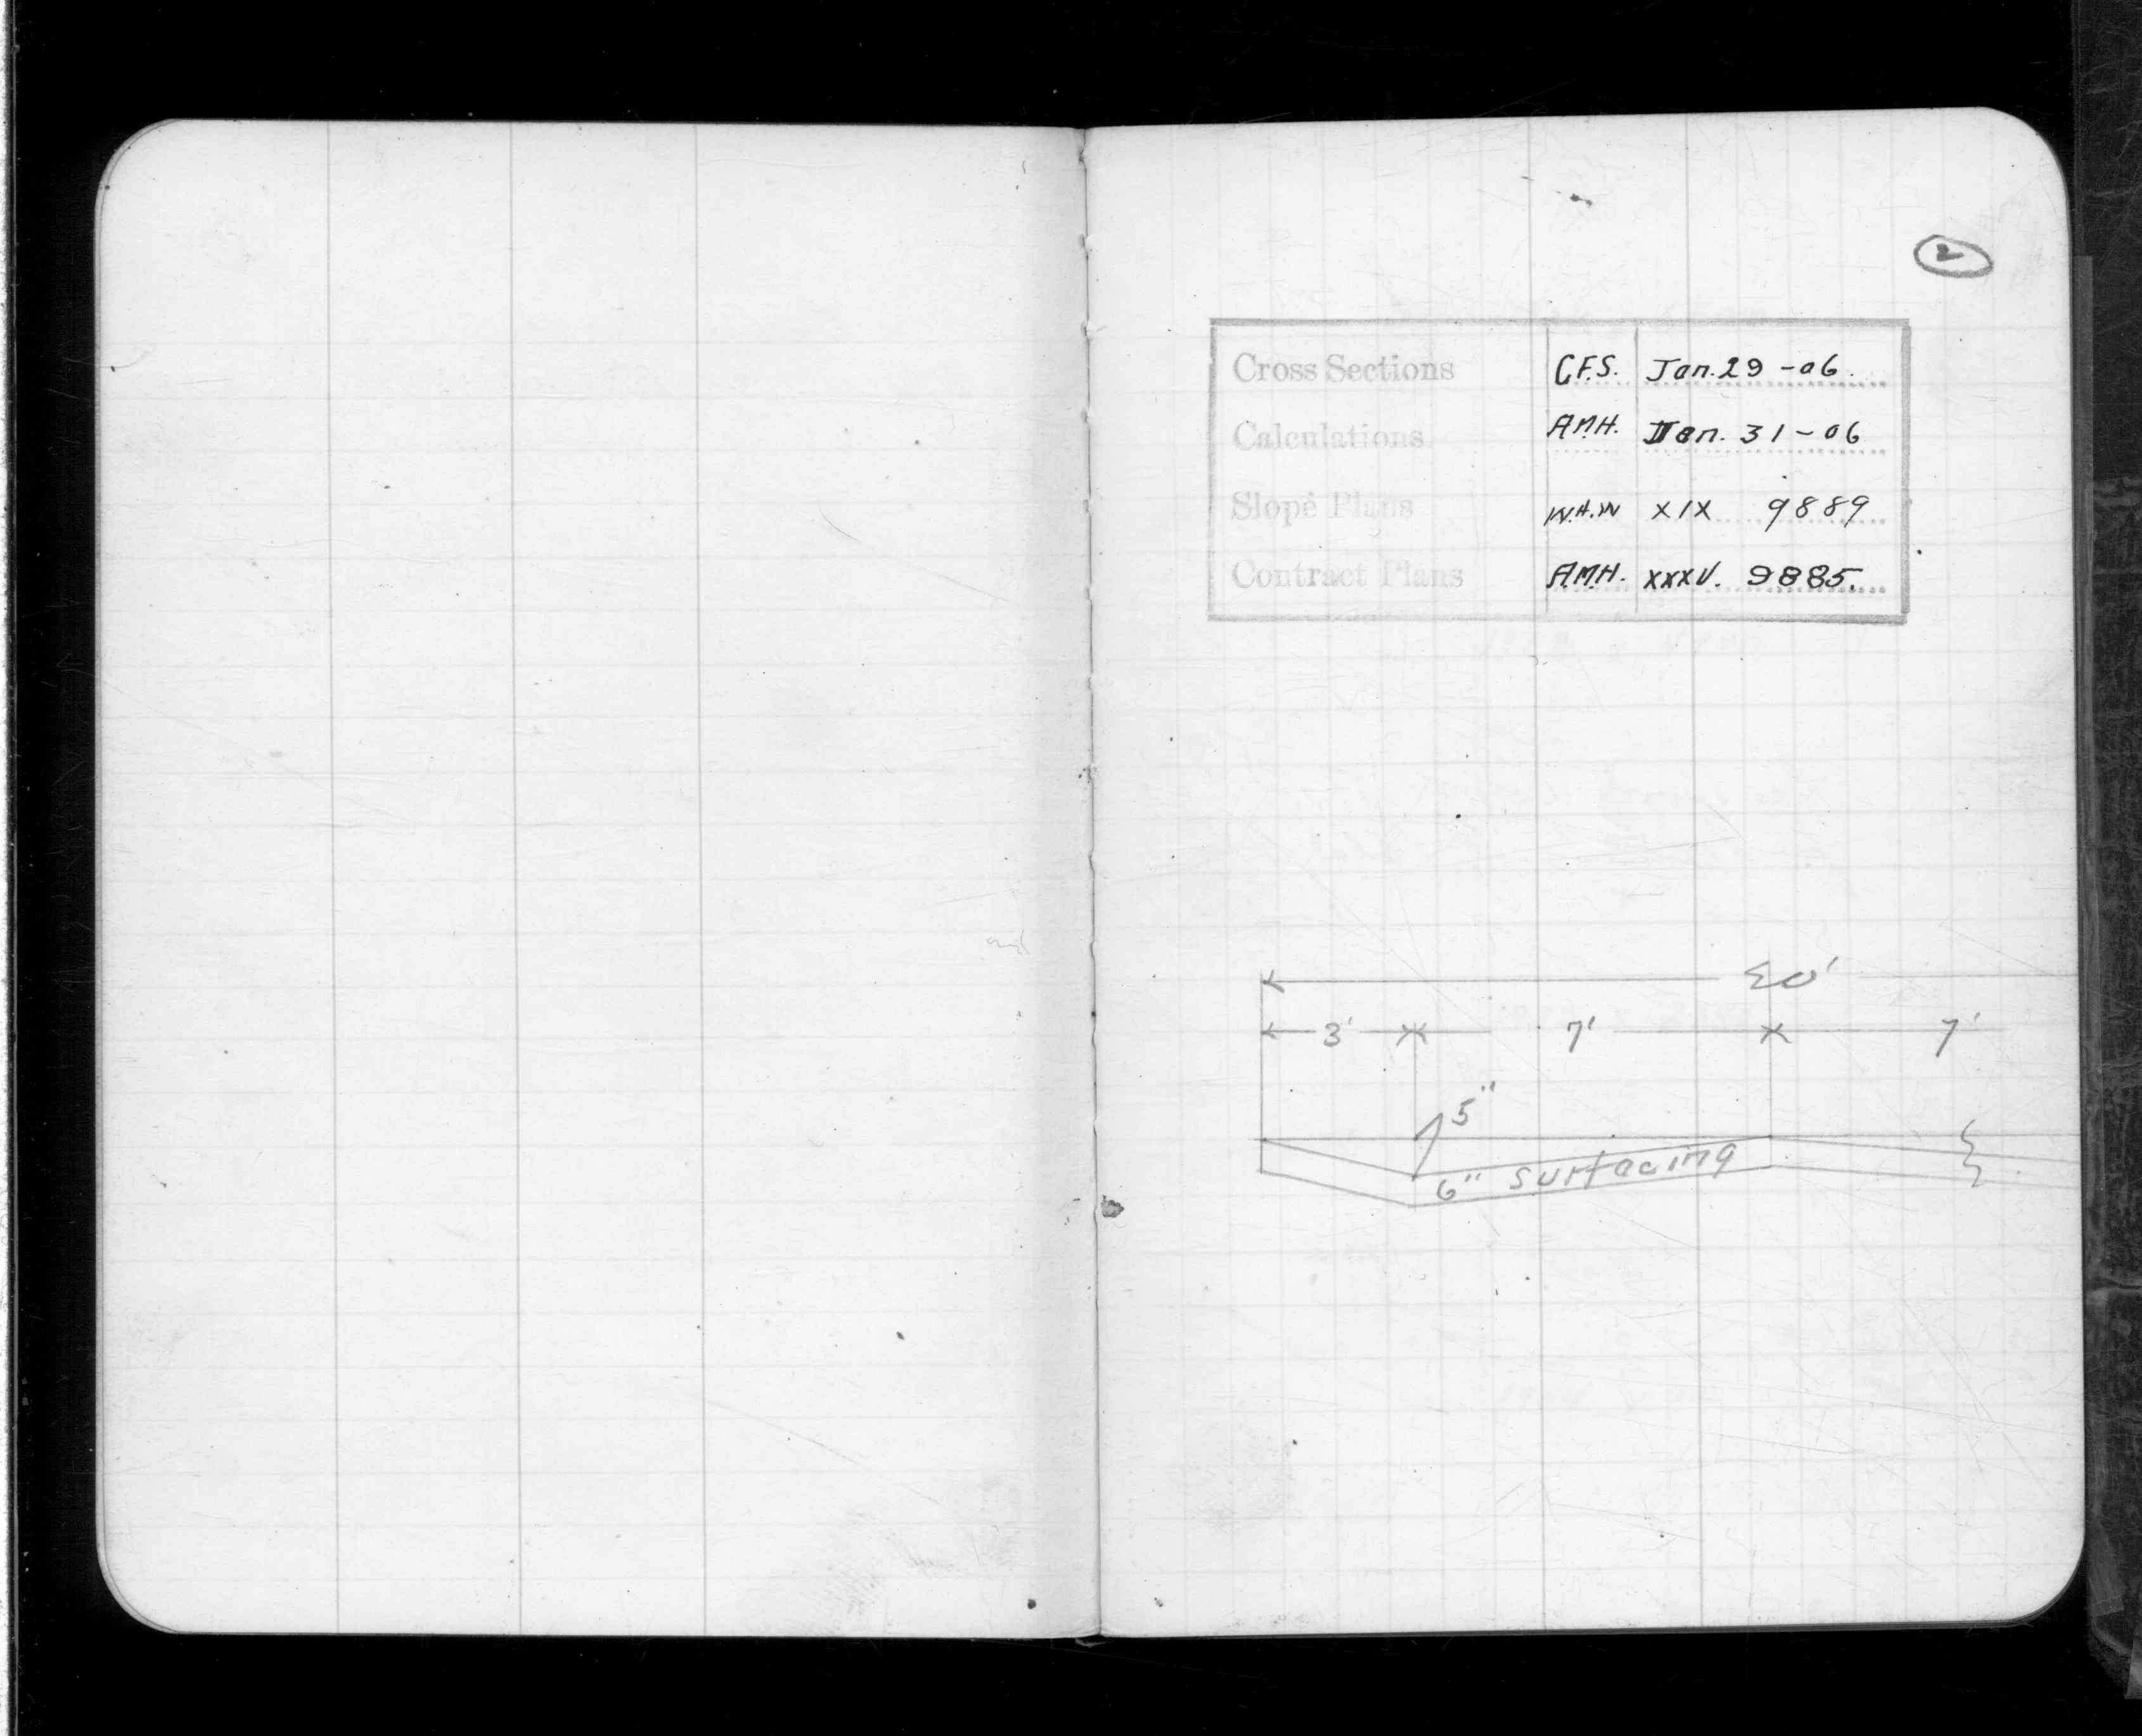 2
Cross Sections C.F.S. Jan. 29 -06.
Calculations A.M.H. Jan. 31-06
Slope Plans W.H.W XIX 9889
Contract Plans A.M.H. XXXV. 9885.
20'
3' 7' 7'
5"
6" surfacing